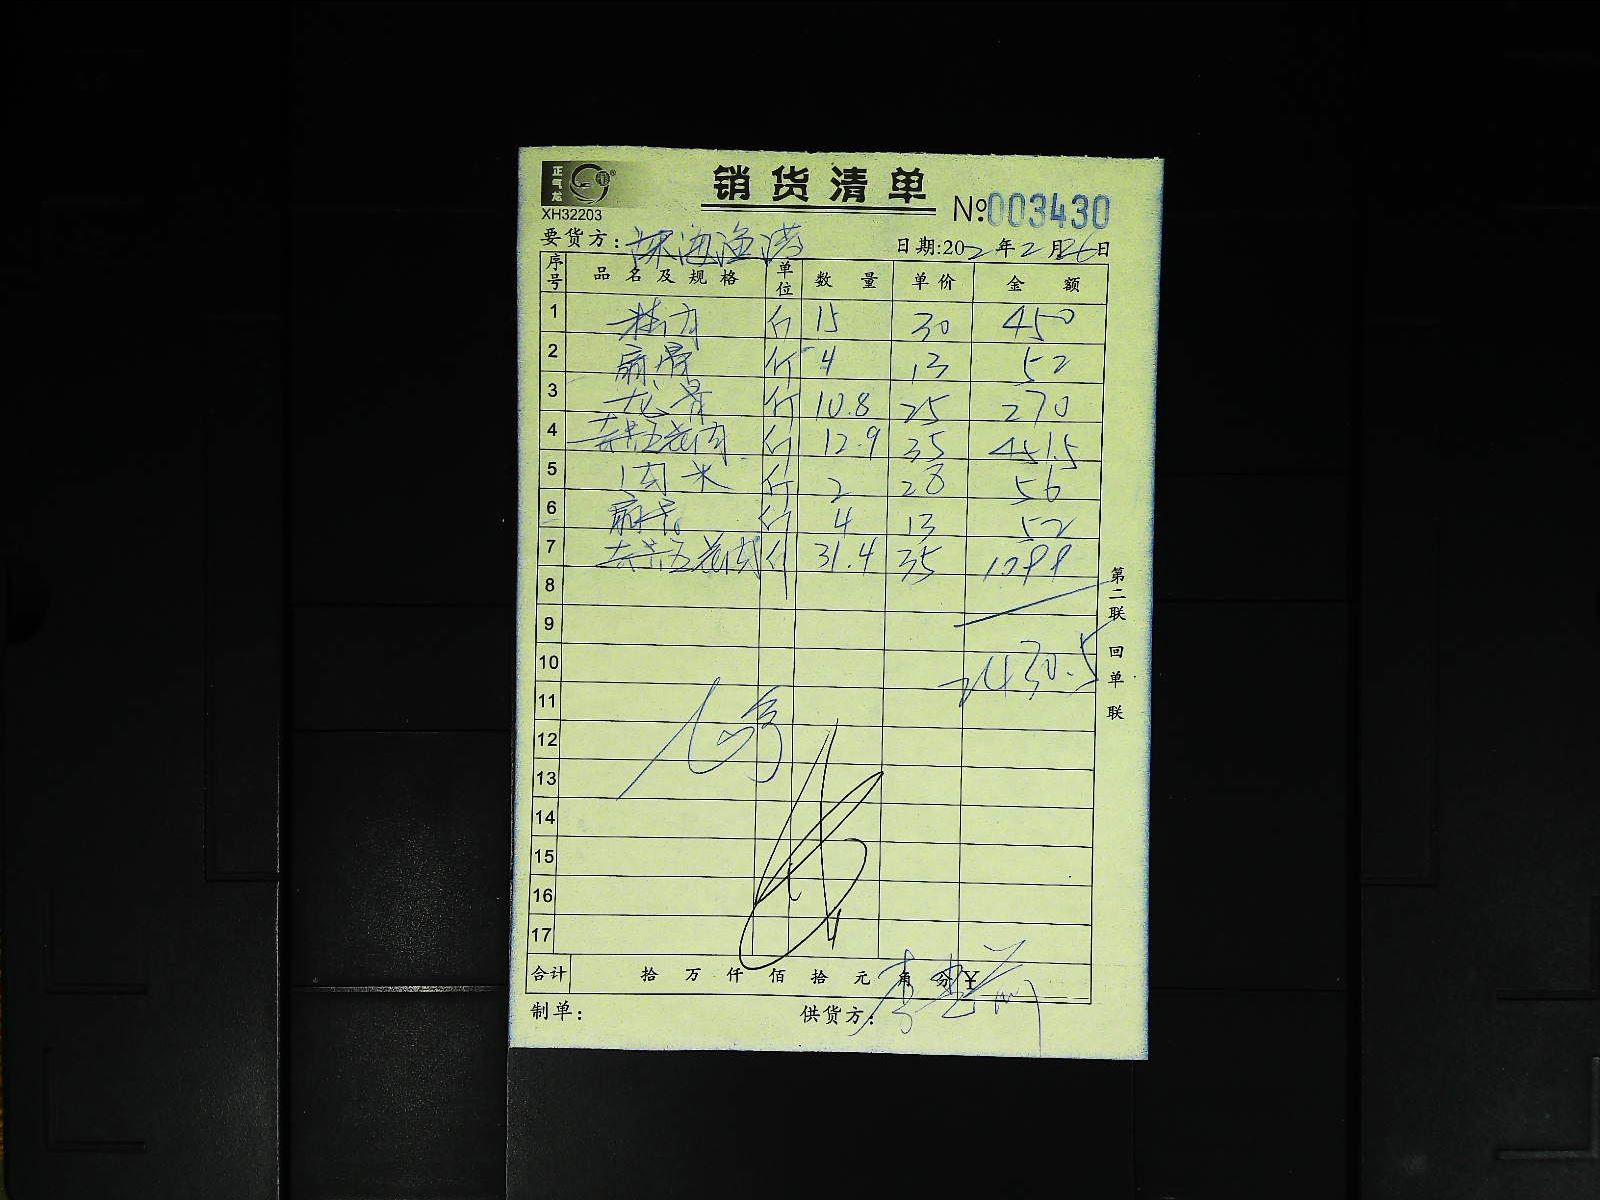 正气龙
XH32203
销货清单
№:003430
要货方:深海渔港
日期:2022年2月26日
序号 品名及规格 单位 数量 单价 金额
1 斤 15 30 450
2 扇骨 斤 4 13 52
3 龙骨 斤 10.8 25 270
4 去皮五花肉 斤 12.9 35 451.5
5 肉米 斤 2 28 56
6 扇骨 斤 4 13 52
7 去皮五花肉 斤 31.4 35 1099
8
9
10 2430.5
11
12
13
14
15
16
17
合计 拾 万 仟 佰 拾 元 角 分 ¥
制单: 供货方:
第二联 回单联